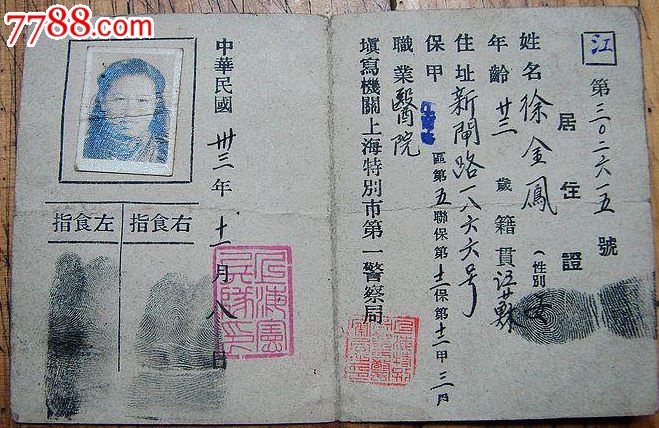 7788.com
江
第三〇二六一五號
居住證
姓名徐金鳳（性別女
年齡廿三歲籍貫江蘇
住址新閘路一八六六号
保甲區第五聯保第十二保第十二甲三戶
職業醫院
填寫機關上海特別市第一警察局
中華民國卅三年十一月八日
右食指
左食指